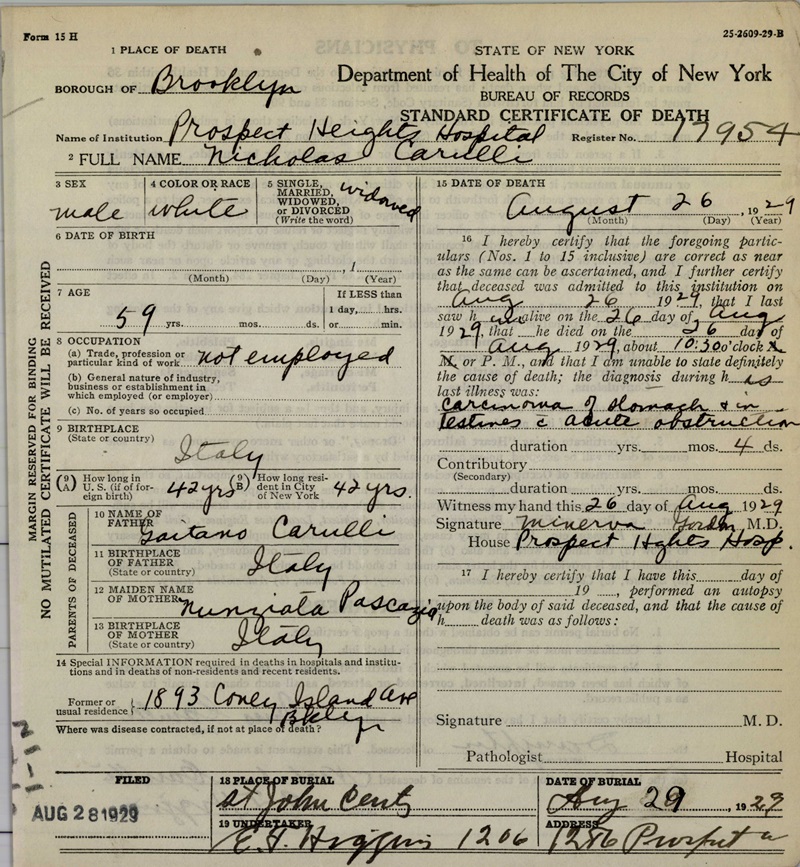 Form 15 H
25-2609-29-B
1 PLACE OF DEATH
STATE OF NEW YORK
BOROUGH OF Brooklyn
Department of Health of The City of New York
BUREAU OF RECORDS
STANDARD CERTIFICATE OF DEATH
Name of Institution Prospect Heights Hospital Register No. 17954
2 FULL NAME Nicholas Carulli
MARGIN RESERVED FOR BINDING
NO MUTILATED CERTIFICATE WILL BE RECEIVED
3 SEX
male
4 COLOR OR RACE
white
5 SINGLE,
MARRIED,
WIDOWED,
or DIVORCED
(Write the word)
widowed
6 DATE OF BIRTH
, 1
(Month) (Day) (Year)
7 AGE
59 yrs. mos. ds.
If LESS than
1 day, hrs.
or min.
8 OCCUPATION
(a) Trade, profession or
particular kind of work not employed
(b) General nature of industry,
business or establishment in
which employed (or employer)
(c) No. of years so occupied
9 BIRTHPLACE
(State or country)
Italy
(9 A) How long in
U. S. (if of for-
eign birth) 42 yrs
(9 B) How long resi-
dent in City
of New York 42 yrs.
PARENTS OF DECEASED
10 NAME OF
FATHER
Gaitano Carulli
11 BIRTHPLACE
OF FATHER
(State or country)
Italy
12 MAIDEN NAME
OF MOTHER
Nunziata Pascazia
13 BIRTHPLACE
OF MOTHER
(State or country)
Italy
14 Special INFORMATION required in deaths in hospitals and institu-
tions and in deaths of non-residents and recent residents.
Former or
usual residence 1893 Coney Island Ave
Bklyn
Where was disease contracted, if not at place of death?
15 DATE OF DEATH
August 26, 1929
(Month) (Day) (Year)
16 I hereby certify that the foregoing partic-
ulars (Nos. 1 to 15 inclusive) are correct as near
as the same can be ascertained, and I further certify
that deceased was admitted to this institution on
Aug 26 1929, that I last
saw h im alive on the 26 day of Aug
1929, that he died on the 26 day of
Aug 1929, about 10:30 o'clock A.
M. or P. M., and that I am unable to state definitely
the cause of death; the diagnosis during h is
last illness was:
carcinoma of stomach & in
testines c̄ acute obstruction
duration yrs. mos. 4 ds.
Contributory
(Secondary)
duration yrs. mos. ds.
Witness my hand this 26 day of Aug 1929
Signature Minerva Gordon, M.D.
House Prospect Hghts Hosp.
17 I hereby certify that I have this day of
19 , performed an autopsy
upon the body of said deceased, and that the cause of
h death was as follows:
Signature M. D.
Pathologist Hospital
FILED
AUG 28 1929
18 PLACE OF BURIAL
St John Centy
DATE OF BURIAL
Aug 29, 1929
19 UNDERTAKER
E. F. Higgins 1206
ADDRESS
1286 Prospect a